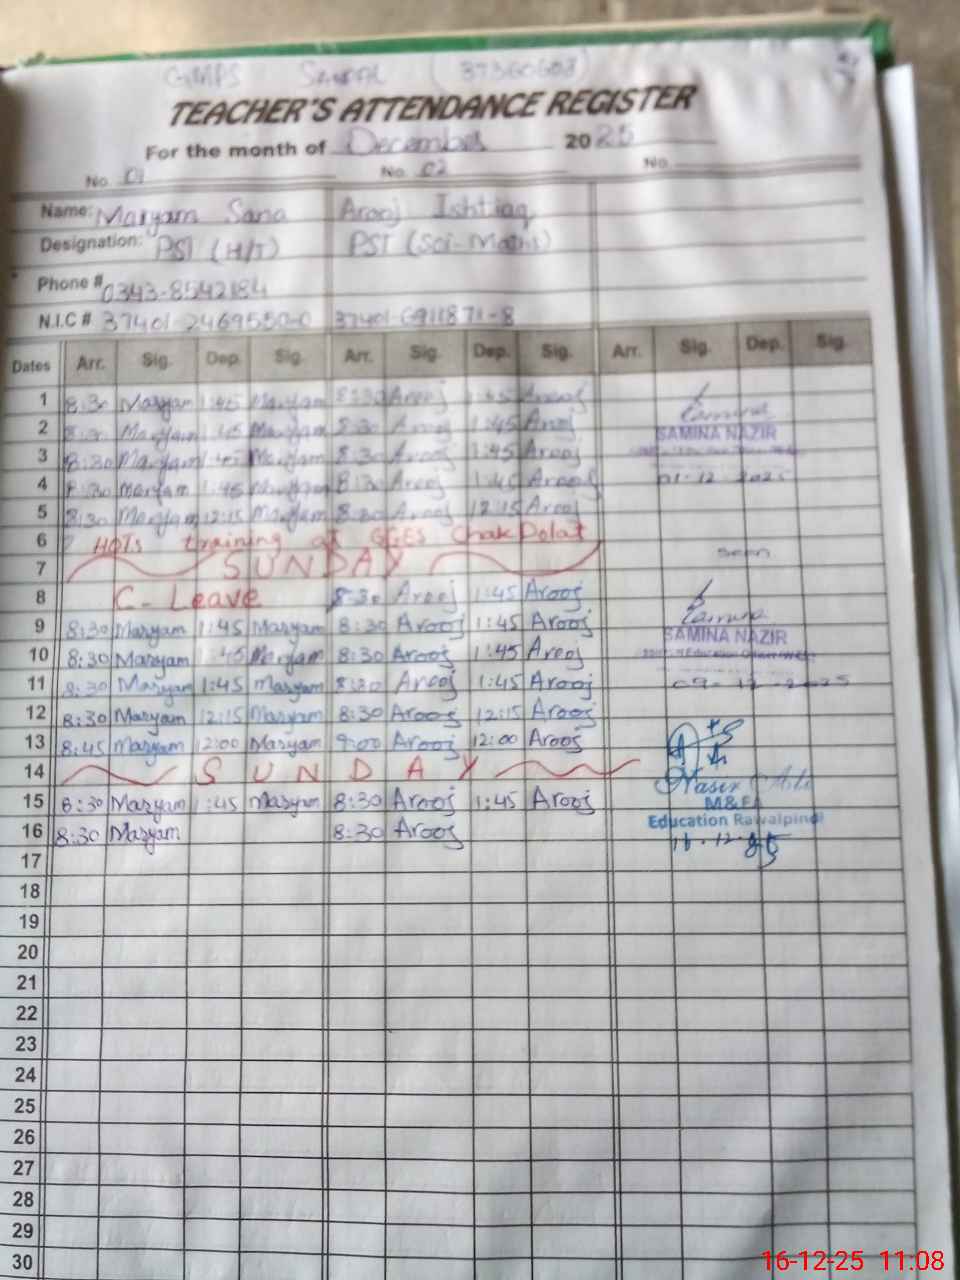 GMPS (37360603)
TEACHER'S ATTENDANCE REGISTER
For the month of December 2025
No. 01 No. 02 No.
Name: Maryam Sana Arooj Ishtiaq
Designation: PST (H/T) PST (Sci-Maths)
Phone # 0343-8542184
N.I.C # 37401-2469550-0 37401-6911871-8
Dates Arr. Sig. Dep. Sig. Arr. Sig. Dep. Sig. Arr. Sig. Dep. Sig.
1 8:30 Maryam 1:45 Maryam 8:30 Arooj 1:45 Arooj
2 8:30 Maryam 1:45 Maryam 8:30 Arooj 1:45 Arooj
SAMINA NAZIR
3 8:30 Maryam 1:45 Maryam 8:30 Arooj 1:45 Arooj
4 8:30 Maryam 1:45 Maryam 8:30 Arooj 1:45 Arooj 01-12-2025
5 8:30 Maryam 12:15 Maryam 8:30 Arooj 12:15 Arooj
6 HOTs training at GGES Chak Dolat
7 SUNDAY seen
8 C-Leave 8:30 Arooj 1:45 Arooj
9 8:30 Maryam 1:45 Maryam 8:30 Arooj 1:45 Arooj
SAMINA NAZIR
10 8:30 Maryam 1:45 Maryam 8:30 Arooj 1:45 Arooj
11 8:30 Maryam 1:45 Maryam 8:30 Arooj 1:45 Arooj 09-12-2025
12 8:30 Maryam 12:15 Maryam 8:30 Arooj 12:15 Arooj
13 8:45 Maryam 12:00 Maryam 9:00 Arooj 12:00 Arooj
14 SUNDAY
Nasir Ali
15 8:30 Maryam 1:45 Maryam 8:30 Arooj 1:45 Arooj M&EA
Education Rawalpindi
16 8:30 Maryam 8:30 Arooj 16-12-25
17
18
19
20
21
22
23
24
25
26
27
28
29
30
16-12-25 11:08